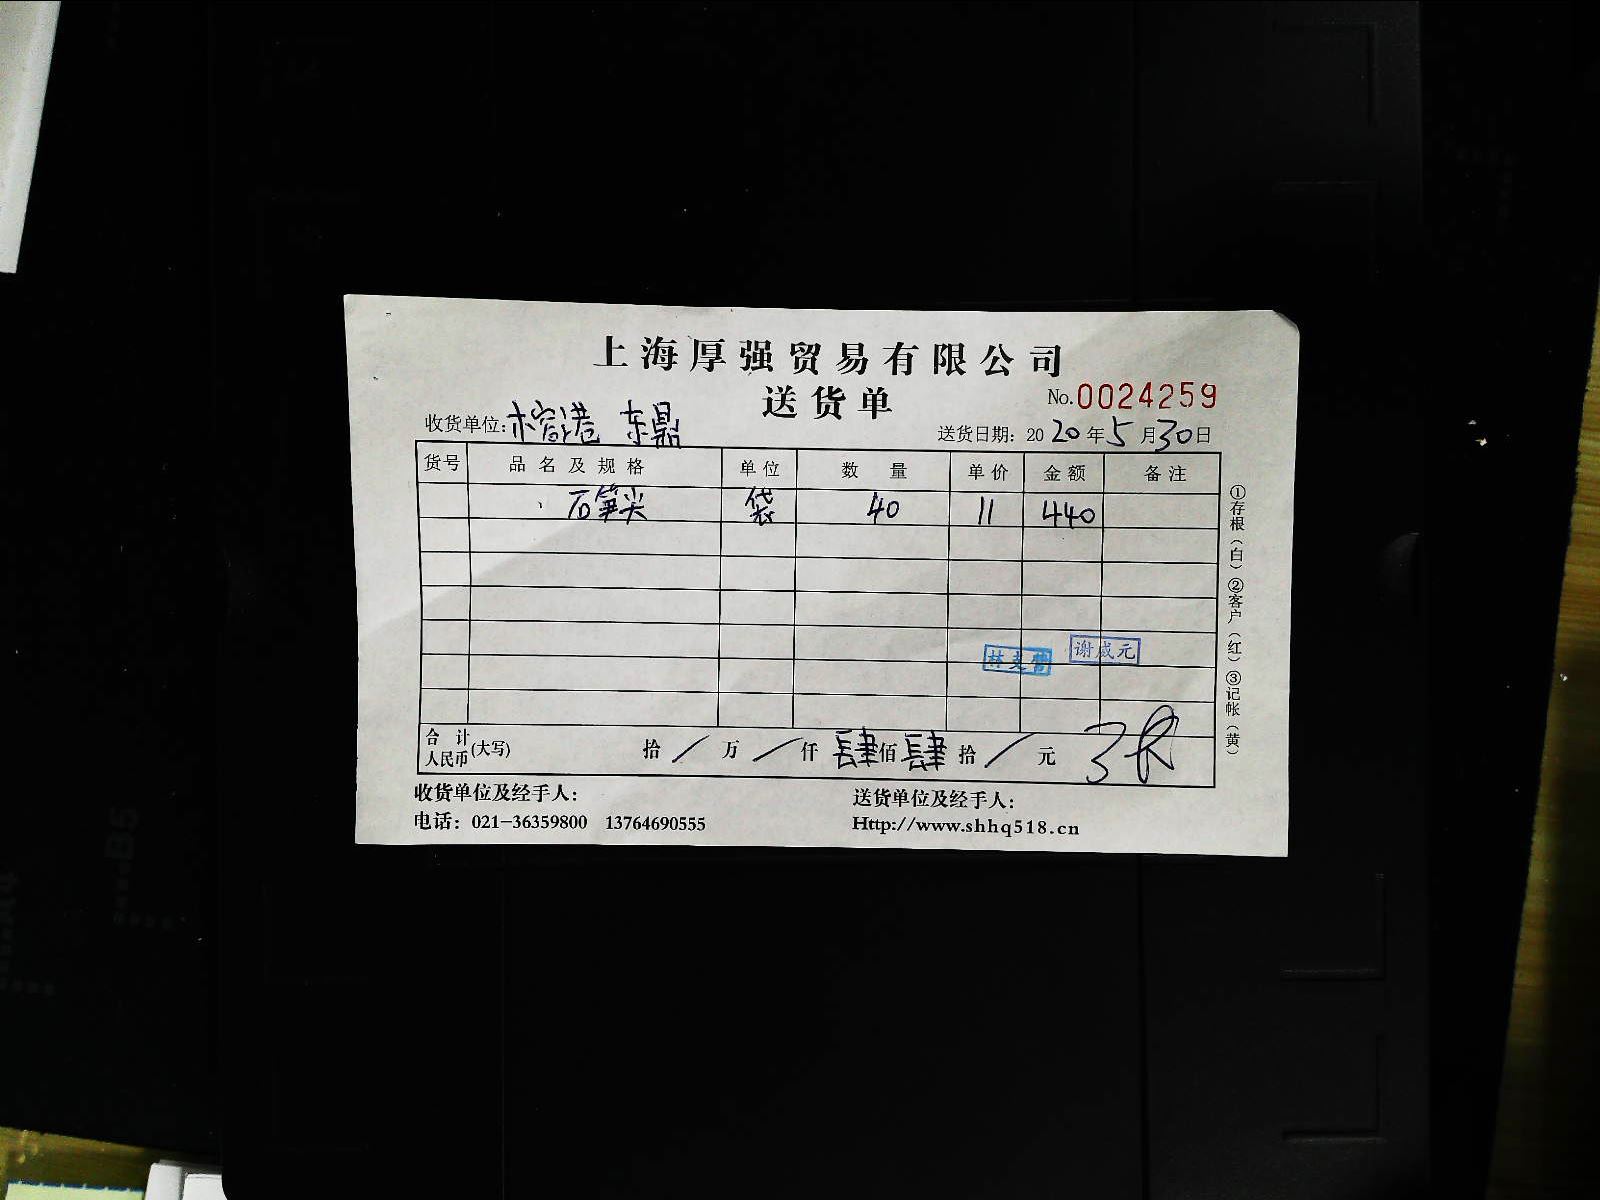 上海厚强贸易有限公司
送货单
No.0024259
收货单位: 榕港 东鼎
送货日期: 2020年5月30日
货号 品名及规格 单位 数量 单价 金额 备注
石笋尖 袋 40 11 440
谢咸元
合计人民币(大写) 拾 / 万 / 仟 肆佰肆拾 / 元
收货单位及经手人:
送货单位及经手人:
电话: 021-36359800 13764690555
Http://www.shhq518.cn
①存根(白)②客户(红)③记帐(黄)
B5